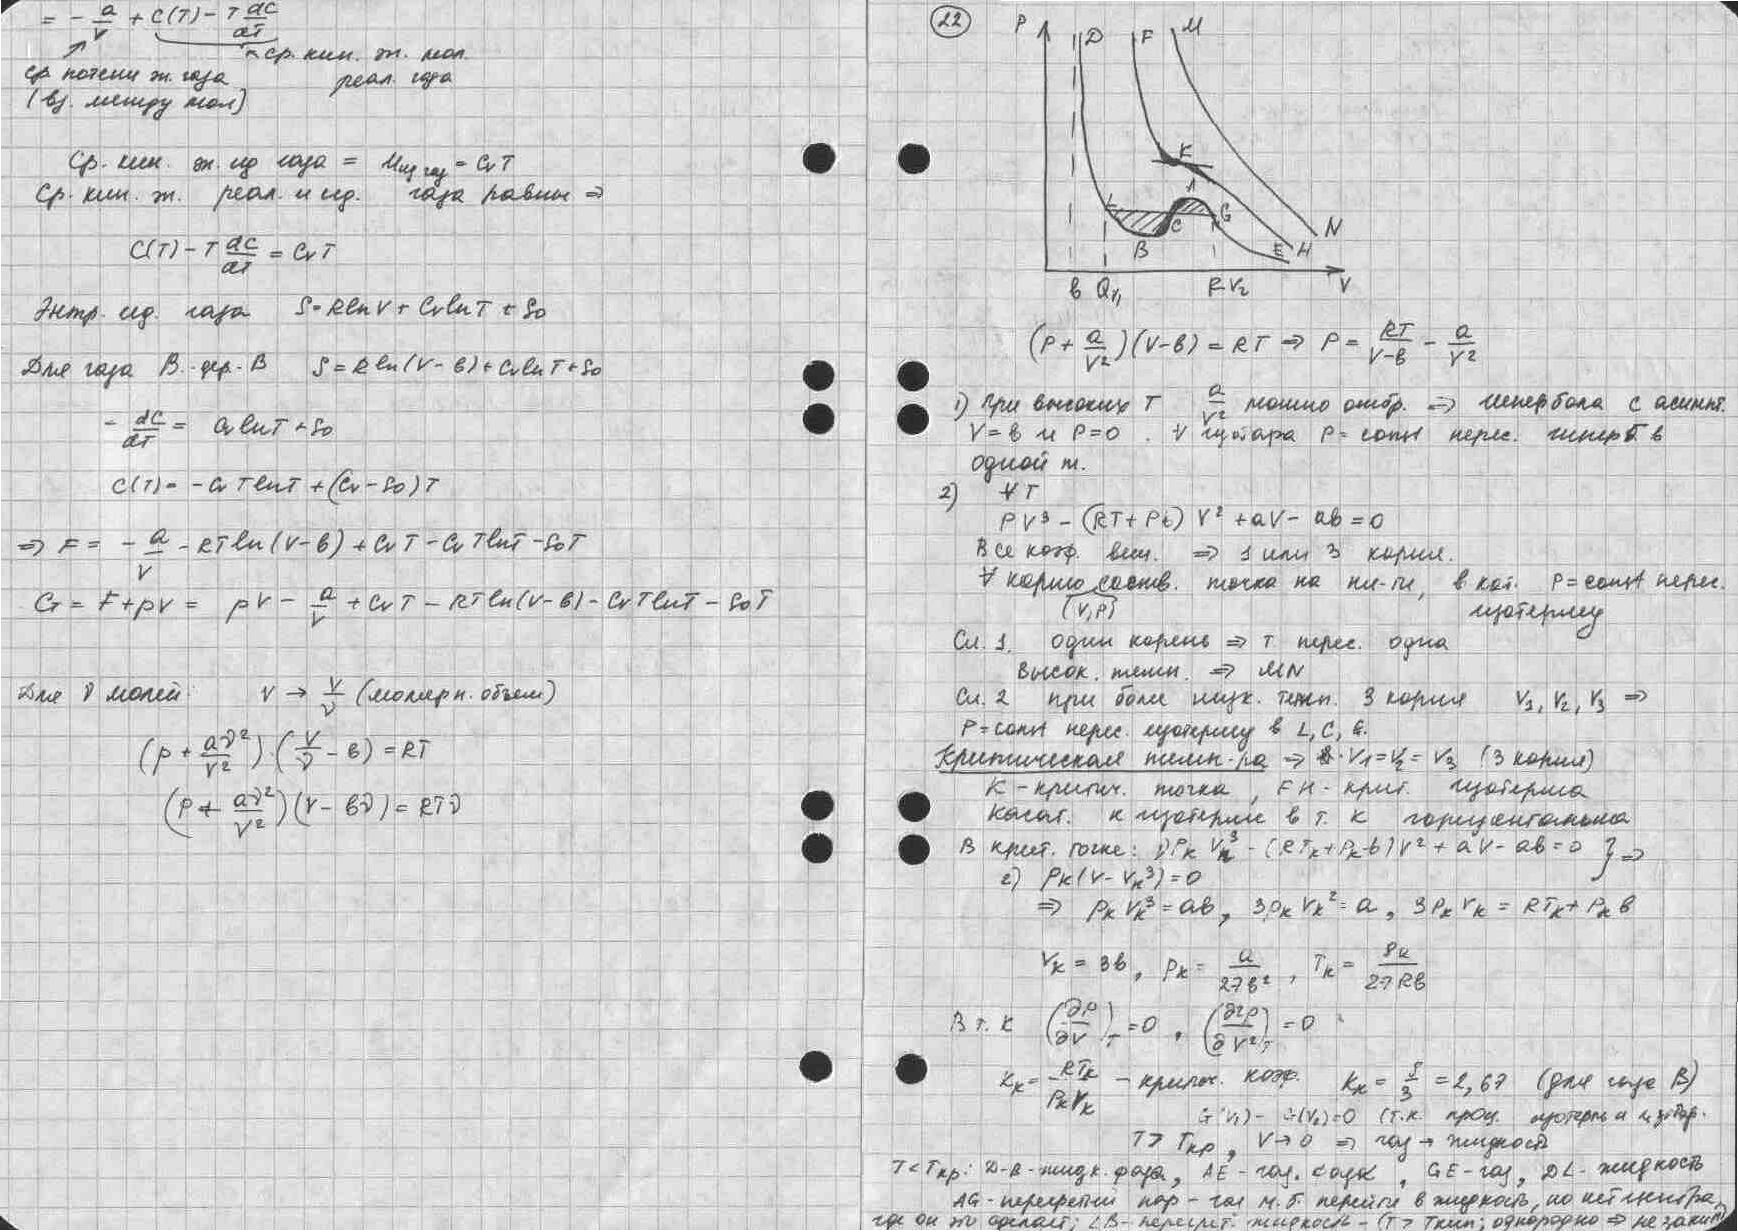 = - a/v + C(T) - T dC/dT
ср. кин. эн. мол.
ср потенц эн. газа реал. газа
(вз. между мол)
Ср. кин. эн. ид газа = Uид газ = CvT
Ср. кин. эн. реал. и ид. газа равны ⇒
C(T) - T dC/dT = CvT
Энтр. ид. газа S = R ln V + Cv ln T + S0
Для газа В.-дер-В S = R ln(V-в) + Cv ln T + S0
- dC/dT = Cv ln T + S0
C(T) = -Cv T ln T + (Cv - S0)T
⇒ F = - a/V - RT ln(V-в) + CvT - CvT ln T - S0T
G = F + pV = pV - a/V + CvT - RT ln(V-в) - CvT ln T - S0T
Для ν молей: V → V/ν (молярн. объем)
(p + aν²/V²)·(V/ν - в) = RT
(p + aν²/V²)(V - вν) = RTν
22
P D F M
K
L A G
B C E H N
в Q V1 R V2 V
(P + a/V²)(V-в) = RT ⇒ P = RT/(V-в) - a/V²
1) При высоких T a/V² можно отбр. ⇒ гипербола с асимпт.
V = в и P = 0. ∀ изобара P = const перес. гиперб. в
одной т.
2) ∀ T
PV³ - (RT + Pв)V² + aV - aв = 0
Все коэф. вещ. ⇒ 1 или 3 корня.
∀ корню соотв. точка на пл-ти, в кот. P = const перес.
(V, P) изотерму
Сл. 1. один корень ⇒ т. перес. одна
Высок. темп. ⇒ MN
Сл. 2 при более низк. темп. 3 корня V1, V2, V3 ⇒
P = const перес. изотерму в L, C, G.
Критическая темп-ра ⇒ V1 = V2 = V3 (3 корня)
K - критич. точка, FH - крит. изотерма
Касат. к изотерме в т. K горизонтальна
В крит. точке: 1) Pк Vк³ - (RTк + Pк в)V² + aV - aв = 0 } ⇒
2) Pк(V - Vк³) = 0
⇒ Pк Vк³ = aв, 3Pк Vк² = a, 3Pк Vк = RTк + Pк в
Vк = 3в, Pк = a/27в², Tк = 8a/27Rв
В т. K (∂P/∂V)T = 0, (∂²P/∂V²)T = 0
Kк = RTк/PкVк - критич. коэф. Kк = 8/3 = 2,67 (для газа В)
G(V1) - G(V2) = 0 (т.к. проц. изотерм и изобар.
T > Tкр, V → 0 ⇒ газ → жидкость
T < Tкр: D-B - жидк. фаза, AE - газ. фаза, GE - газ, DL - жидкость
AG - перегретый пар - газ м.б. перейти в жидкость, но нет центра,
где он это сделает; LB - перегрет. жидкость - (T > Tкип; однородно ⇒ не закип)